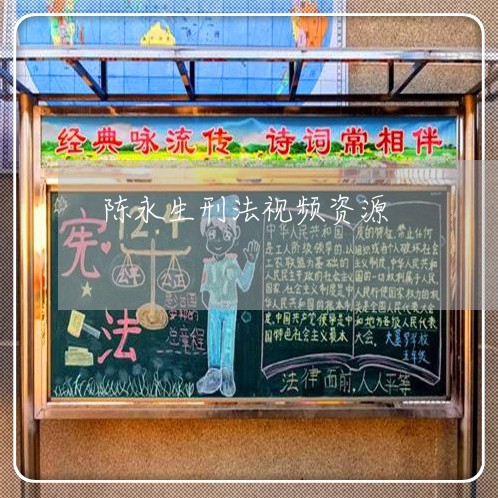 经典咏流传 诗词常相伴
陈永生刑法视频资源
12.4
宪
法
公平
公正
总章程
中华人民共和国
是工人阶级领导的,以
工农联盟为基础的
人民民主专政的社会主义
国家,社会主义制度是中
华人民共和国的根本制
度,中国共产党领导是中
国特色社会主义最本
质的特征,禁止任何
组织或者个人破坏社会
主义制度,中华人民共和
国的一切权利属于人民,
人民行使国家权力的机
关是全国人民代表大会
和地方各级人民代表
大会.
五年级
法律面前,人人平等